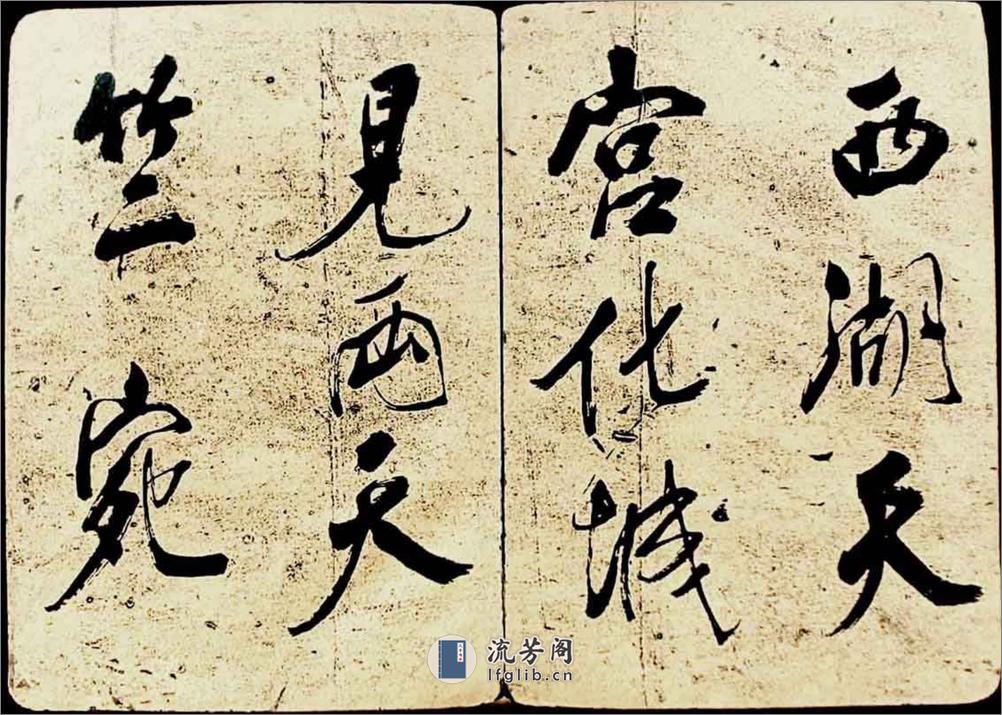 西湖天
宫化城
見西天
竺宛
流芳阁
lfglib.cn